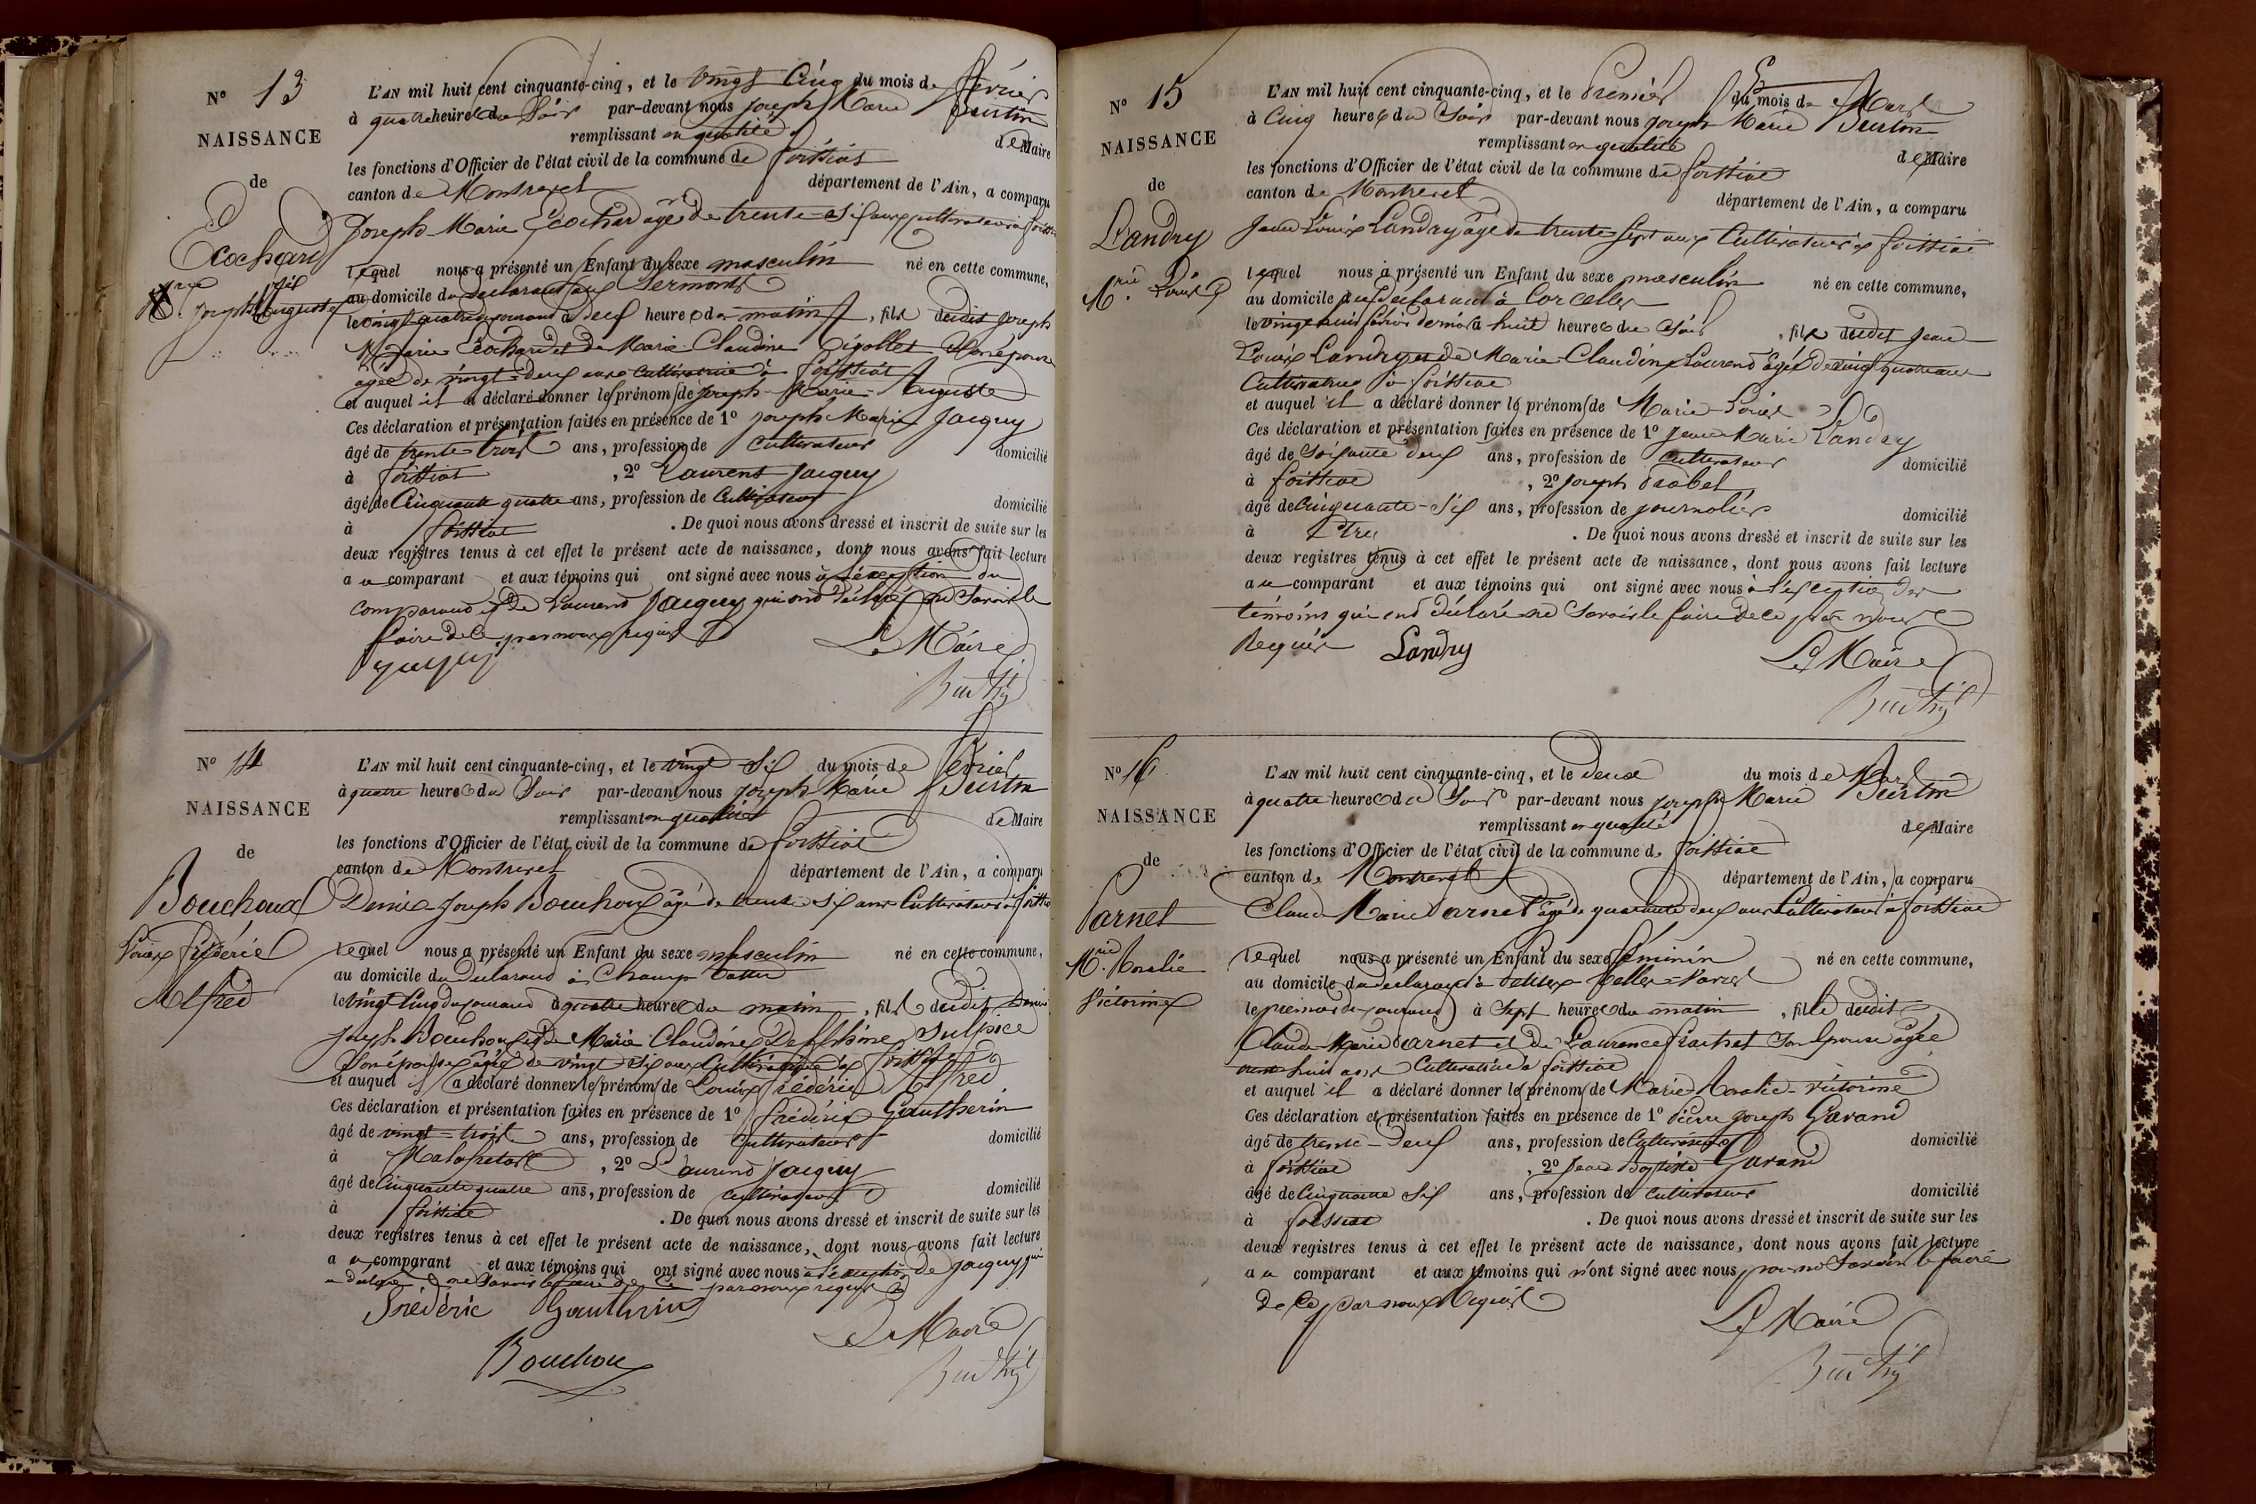 N° 13
NAISSANCE
de
Ecochard
Joseph Auguste
L'AN mil huit cent cinquante-cinq, et le vingt Cinq du mois de février
à quatre heures du Soir par-devant nous Joseph Marie Burtin
remplissant en qualité de Maire
les fonctions d'Officier de l'état civil de la commune de foissiat
canton de Montrevel département de l'Ain, a comparu
Joseph-Marie Ecochard âgé de trente-six ans cultivateur à
lequel nous a présenté un Enfant du sexe masculin né en cette commune,
au domicile du déclarant aux Sermonds
le vingt quatre du courant à deux heures du matin, fils dudit Joseph
Marie Ecochard et de Marie Claudine son épouse
âgée de vingt-deux ans cultivatrice à foissiat
et auquel il a déclaré donner les prénoms de Joseph-Marie-Auguste
Ces déclaration et présentation faites en présence de 1° Joseph Marie Jacquy
âgé de trente trois ans, profession de cultivateur domicilié
à foissiat, 2° Laurent Jacquy
âgé de Cinquante quatre ans, profession de Cultivateur domicilié
à foissiat. De quoi nous avons dressé et inscrit de suite sur les
deux registres tenus à cet effet le présent acte de naissance, dont nous avons fait lecture
au comparant et aux témoins qui ont signé avec nous à l'exception du
comparant et de Laurend Jacquy qui ont déclaré ne Savoir le
faire de ce par nous requis
Le Maire
Burtin
N° 14
NAISSANCE
de
Bouchoux
Louis frédéric
Alfred
L'AN mil huit cent cinquante-cinq, et le vingt-six du mois de février
à quatre heures du Soir par-devant nous Joseph Marie Burtin
remplissant en qualité de Maire
les fonctions d'Officier de l'état civil de la commune de foissiat
canton de Montrevel département de l'Ain, a comparu
Denis-Joseph Bouchoux âgé de trente six ans Cultivateur à
lequel nous a présenté un Enfant du sexe masculin né en cette commune,
au domicile du Déclarand à Champ
le vingt Cinq du courand à quatre heures du matin, fils dudit Denis
Joseph Bouchoux et de Marie Claudine Delphine Sulpice
Son épouse âgée de vingt six ans Cultivatrice à foissiat
et auquel il a déclaré donner les prénoms de Louis frédéric Alfred
Ces déclaration et présentation faites en présence de 1° frédéric Gautherin
âgé de vingt-trois ans, profession de Cultivateur domicilié
à Malafretaz, 2° Laurend Jacquy
âgé de Cinquante quatre ans, profession de cultivateur domicilié
à foissiat. De quoi nous avons dressé et inscrit de suite sur les
deux registres tenus à cet effet le présent acte de naissance, dont nous avons fait lecture
au comparant et aux témoins qui ont signé avec nous à l'exception de Jacquy qui
a déclaré ne Savoir le faire de ce par nous requis
Frédéric Gautherin
Le Maire
Bouchoux
Burtin
N° 15
NAISSANCE
de
Landry
Mrie Louis
L'AN mil huit cent cinquante-cinq, et le Premier du mois de Mars
à Cinq heures du Soir par-devant nous Joseph Marie Burtin
remplissant en qualité de Maire
les fonctions d'Officier de l'état civil de la commune de foissiat
canton de Montrevel département de l'Ain, a comparu
Jean Louis Landry âgé de trente Sept ans Cultivateur à foissiat
lequel nous a présenté un Enfant du sexe masculin né en cette commune,
au domicile du Déclarand à Corcelles
le vingt huit février dernier à huit heures du Soir, fils dudit Jean
Louis Landry et de Marie-Claudine Laurend âgée de vingt quatre ans
Cultivatrice à foissiat
et auquel il a déclaré donner les prénoms de Marie-Louis
Ces déclaration et présentation faites en présence de 1° Jean Marie Landry
âgé de Soixante deux ans, profession de Cultivateur domicilié
à foissiat, 2° Joseph
âgé de Cinquante-Six ans, profession de journalier domicilié
à Etrez. De quoi nous avons dressé et inscrit de suite sur les
deux registres tenus à cet effet le présent acte de naissance, dont nous avons fait lecture
au comparant et aux témoins qui ont signé avec nous à l'exception des
témoins qui ont déclaré ne Savoir le faire de ce par nous
Requis Landry
Le Maire
Burtin
N° 16
NAISSANCE
de
Parnet
Mrie Rosalie
Victorine
L'AN mil huit cent cinquante-cinq, et le Deux du mois de Mars
à quatre heures du Soir par-devant nous Joseph Marie Burtin
remplissant en qualité de Maire
les fonctions d'Officier de l'état civil de la commune de foissiat
canton de Montrevel département de l'Ain, a comparu
Claude Marie Parnet âgé de quarante deux ans Cultivateur à foissiat
lequel nous a présenté un Enfant du sexe féminin né en cette commune,
au domicile du déclarant à
le premier du courand à Sept heures du matin, fille dudit
Claude-Marie Parnet et de Laurence Son épouse âgée
huit ans Cultivatrice à foissiat
et auquel il a déclaré donner les prénoms de Marie Rosalie-victorine
Ces déclaration et présentation faites en présence de 1° Pierre Joseph Gavand
âgé de trente-Deux ans, profession de Cultivateur domicilié
à foissiat, 2° Jean Baptiste Gavand
âgé de Cinquante Six ans, profession de Cultivateur domicilié
à foissiat. De quoi nous avons dressé et inscrit de suite sur les
deux registres tenus à cet effet le présent acte de naissance, dont nous avons fait lecture
au comparant et aux témoins qui n'ont signé avec nous pour ne Savoir le faire
de Ce par nous Requis
Le Maire
Burtin